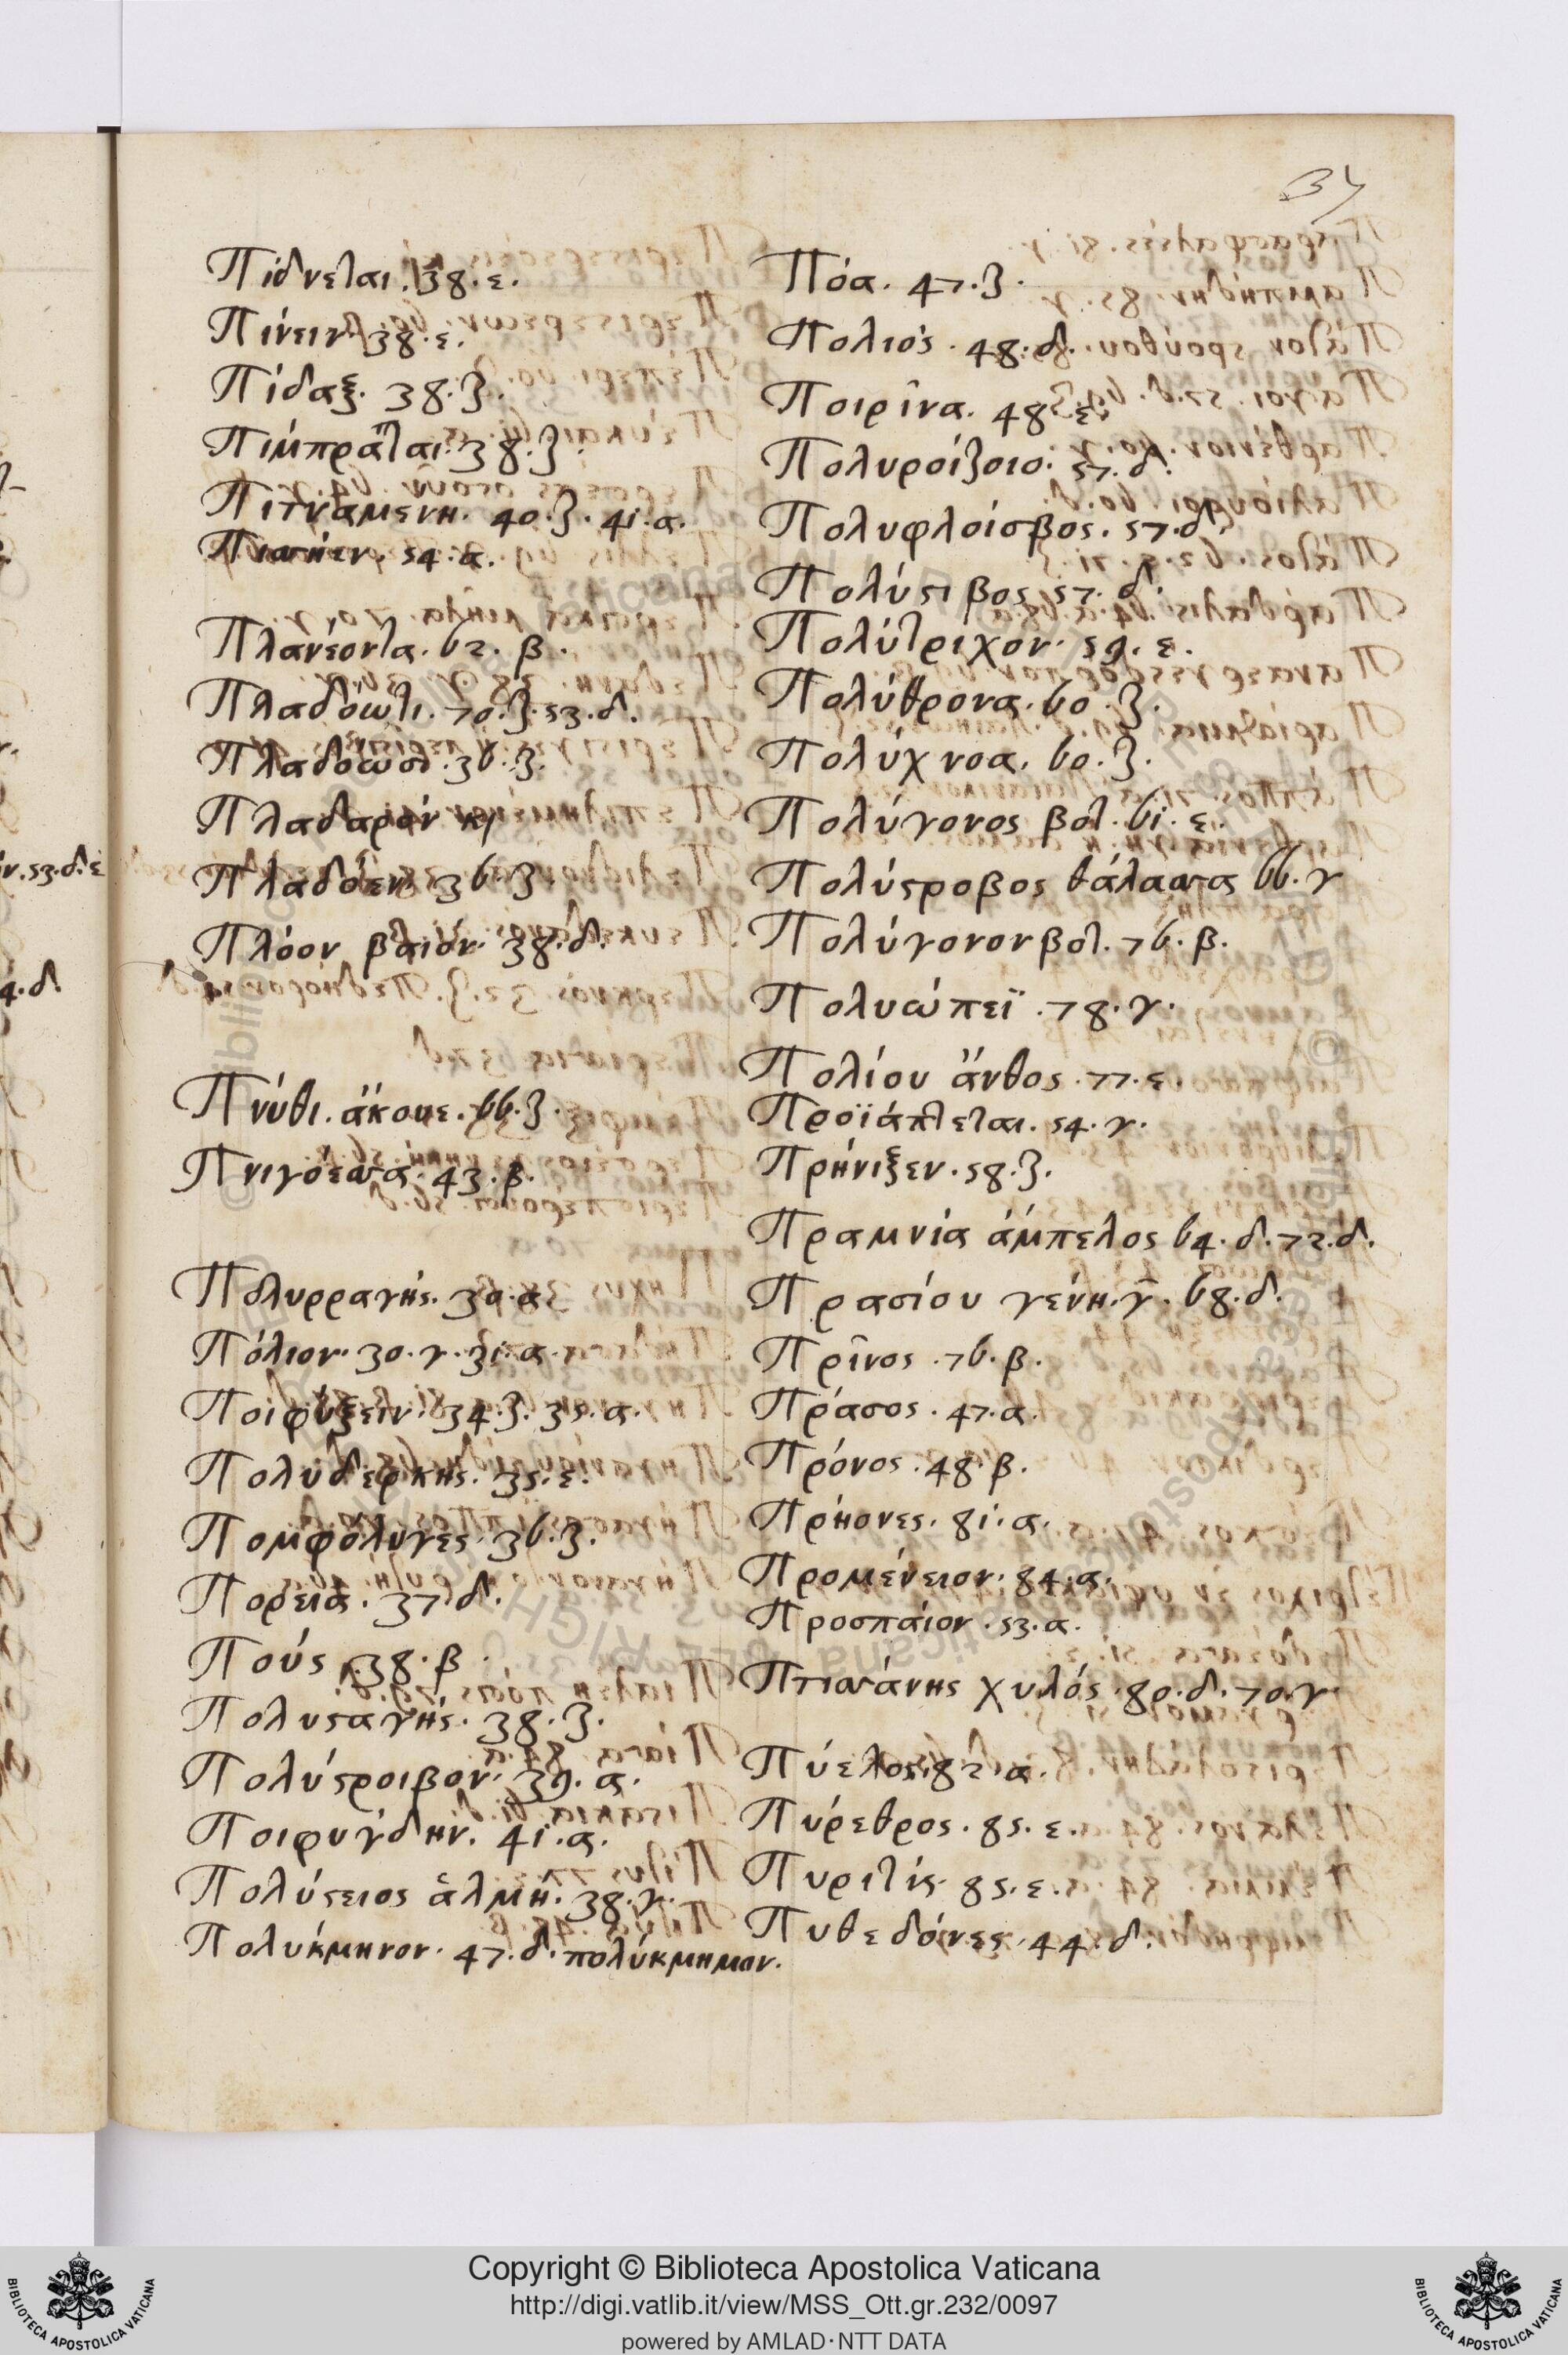 37
Πίδνεται. 38. ε.
Πίνειν. 38. ε.
Πίδαξ. 38. ζ.
Πίμπραται. 38. ζ.
Πιτναμενη. 40. ζ. 41. α.
54. α.
Πλανέοντα. 62. β.
Πλαδόωτι. 70. ζ. 53. δ.
Πλαδόωσι. 36. ζ.
Πλαδαρόν κ/
Πλαδόεν. 36. ζ.
Πλόον βαιόν. 38. δ.
Πνύθι. ἄκουε. 66. ζ.
Πνιγόεσσα. 43. β.
Πολυρραγής. 30. α.
Πόλιον. 30. γ. 31. α.
Ποιφύξειν. 34. ζ. 35. α.
Πολυδερκής. 35. ε.
Πομφόλυγες. 36. ζ.
Πορείας. 37. δ.
Πούς. 38. β.
Πολυσταγής. 38. ζ.
Πολύστροιβον. 39. α.
Ποιφυγδην. 41. α.
Πολύστειος ἁλμή. 38. γ.
Πολυκμηνον. 47. δ. πολύκμημον.
Πόα. 47. ζ.
Πολιός. 48. δ.
Ποιρῖνα. 48. ε.
Πολυροίζοιο. 57. δ.
Πολυφλοίσβος. 57. δ.
Πολύστιβος 57. δ.
Πολύτριχον. 59. ε.
Πολύθρονα. 60. ζ.
Πολύχνοα. 60. ζ.
Πολύγονος βοτ. 61. ε.
Πολύστροβος θάλασσα 66. γ
Πολύγονον βοτ. 76. β.
Πολυώπεϊ. 78. γ.
Πολίου ἄνθος. 77. ε.
Προϊάπτεται. 54. γ.
Πρήνιξεν. 58. ζ.
Πραμνία ἄμπελος 64. δ. 72. δ.
Πρασίου γένη. γ. 68. δ.
Πρῖνος. 76. β.
Πράσος. 47. α.
Πρόνος. 48. β.
Πρήονες. 81. α.
Προμένειον. 84. α.
Προσπαίον. 53. α.
Πτισάνης χυλός. 80. δ. 70. γ.
Πύελος. 82. α.
Πύρεθρος. 85. ε.
Πυριτίς. 85. ε.
Πυθεδόνες. 44. δ.
Copyright © Biblioteca Apostolica Vaticana
http://digi.vatlib.it/view/MSS_Ott.gr.232/0097
powered by AMLAD·NTT DATA
BIBLIOTECA APOSTOLICA VATICANA
BIBLIOTECA APOSTOLICA VATICANA